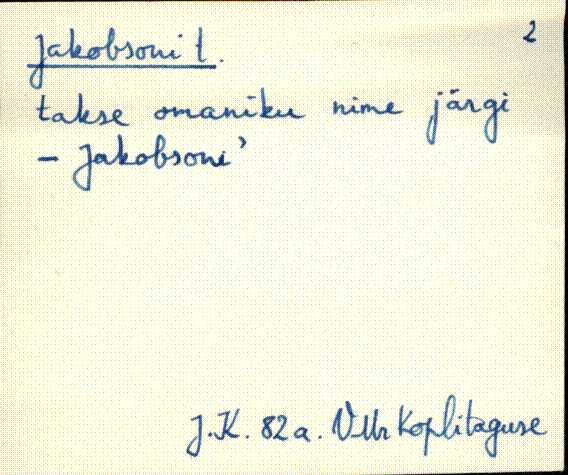 2
Jakobsoni t.
takse omaniku nime järgi
– Jakobsoni'
J.K. 82a. VMr Koplitaguse